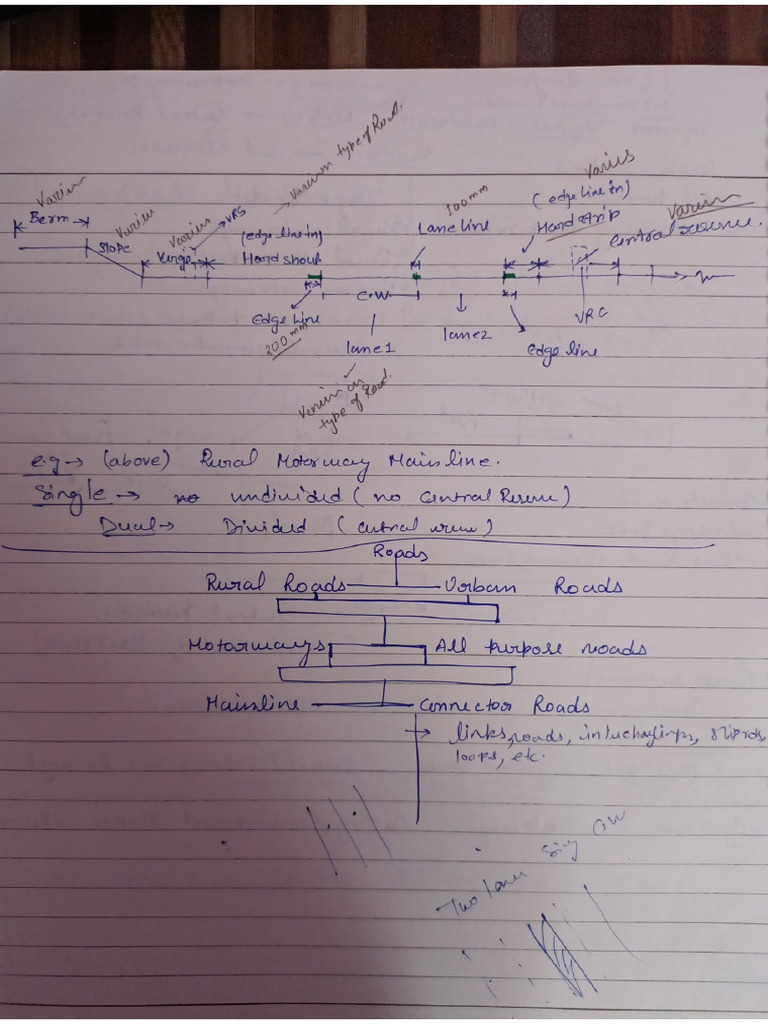 Varies
Berm
Varies
Slope
Varies
Verge
VRS
→ Varies on type of Road.
(edge line in)
Hard shoul
Edge Line
200 mm
C.W.
lane 1
Varies on
type of Road.
100 mm
Lane line
lane 2
Varies
(edge line in)
Hard strip
Edge line
Varies
Central reserve.
VRC
e.g → (above) Rural Motorway Mainline.
Single → no undivided (no Central Reserve)
Dual → Divided (central reserve)
Roads
Rural Roads Urban Roads
Motorways All purpose roads
Mainline Connector Roads
→ links, roads, interchanges, sliprds,
loops, etc.
Two lane Sing CW